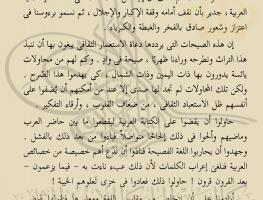 العربية ، جدير بأن نقف أمامه وقفة الإكبار والإجلال ، ثم نسمو برءوسنا فى
اعتزاز وشعور صادق بالفخر والغبطة والكبرياء .
إن هذه الصيحات التى يرددها دعاة الاستعمار الثقافى يبغون بها أن ننبذ
هذا التراث ونطرحه وراءنا ظهريًا ، صيحة فى واد . وكم لهم من محاولات
يائسة يدورون بها ذات اليمين وذات الشمال ، كى يهدموا هذا الصرح .
ولكن تلك المحاولات لم تجد لها صدى إلا عند من أمكنهم أن يُضفوا على
أنفسهم ظل الاستعباد الثقافى ، من ضعاف القلوب ، وأرقاء التفكير .
حاولوا أن يقضوا على الكتابة العربية ليقطعوا ما بين حاضر العرب
وماضيهم وألحوا فى ذلك إلحاحًا متواصلًا فباءوا من بعد ذلك بالفشل .
وجهدوا أن يحاربوا اللغة الفصيحة فنادوا أن ندع أهم خصيصة من خصائص
العربية فنلغى إعراب الكلمات لأن ذلك عبء ناءت به – فيما يزعمون –
بعد القرون قرون ! حاولوا ذلك فعادوا فى خزى تعلوهم الخيبة !